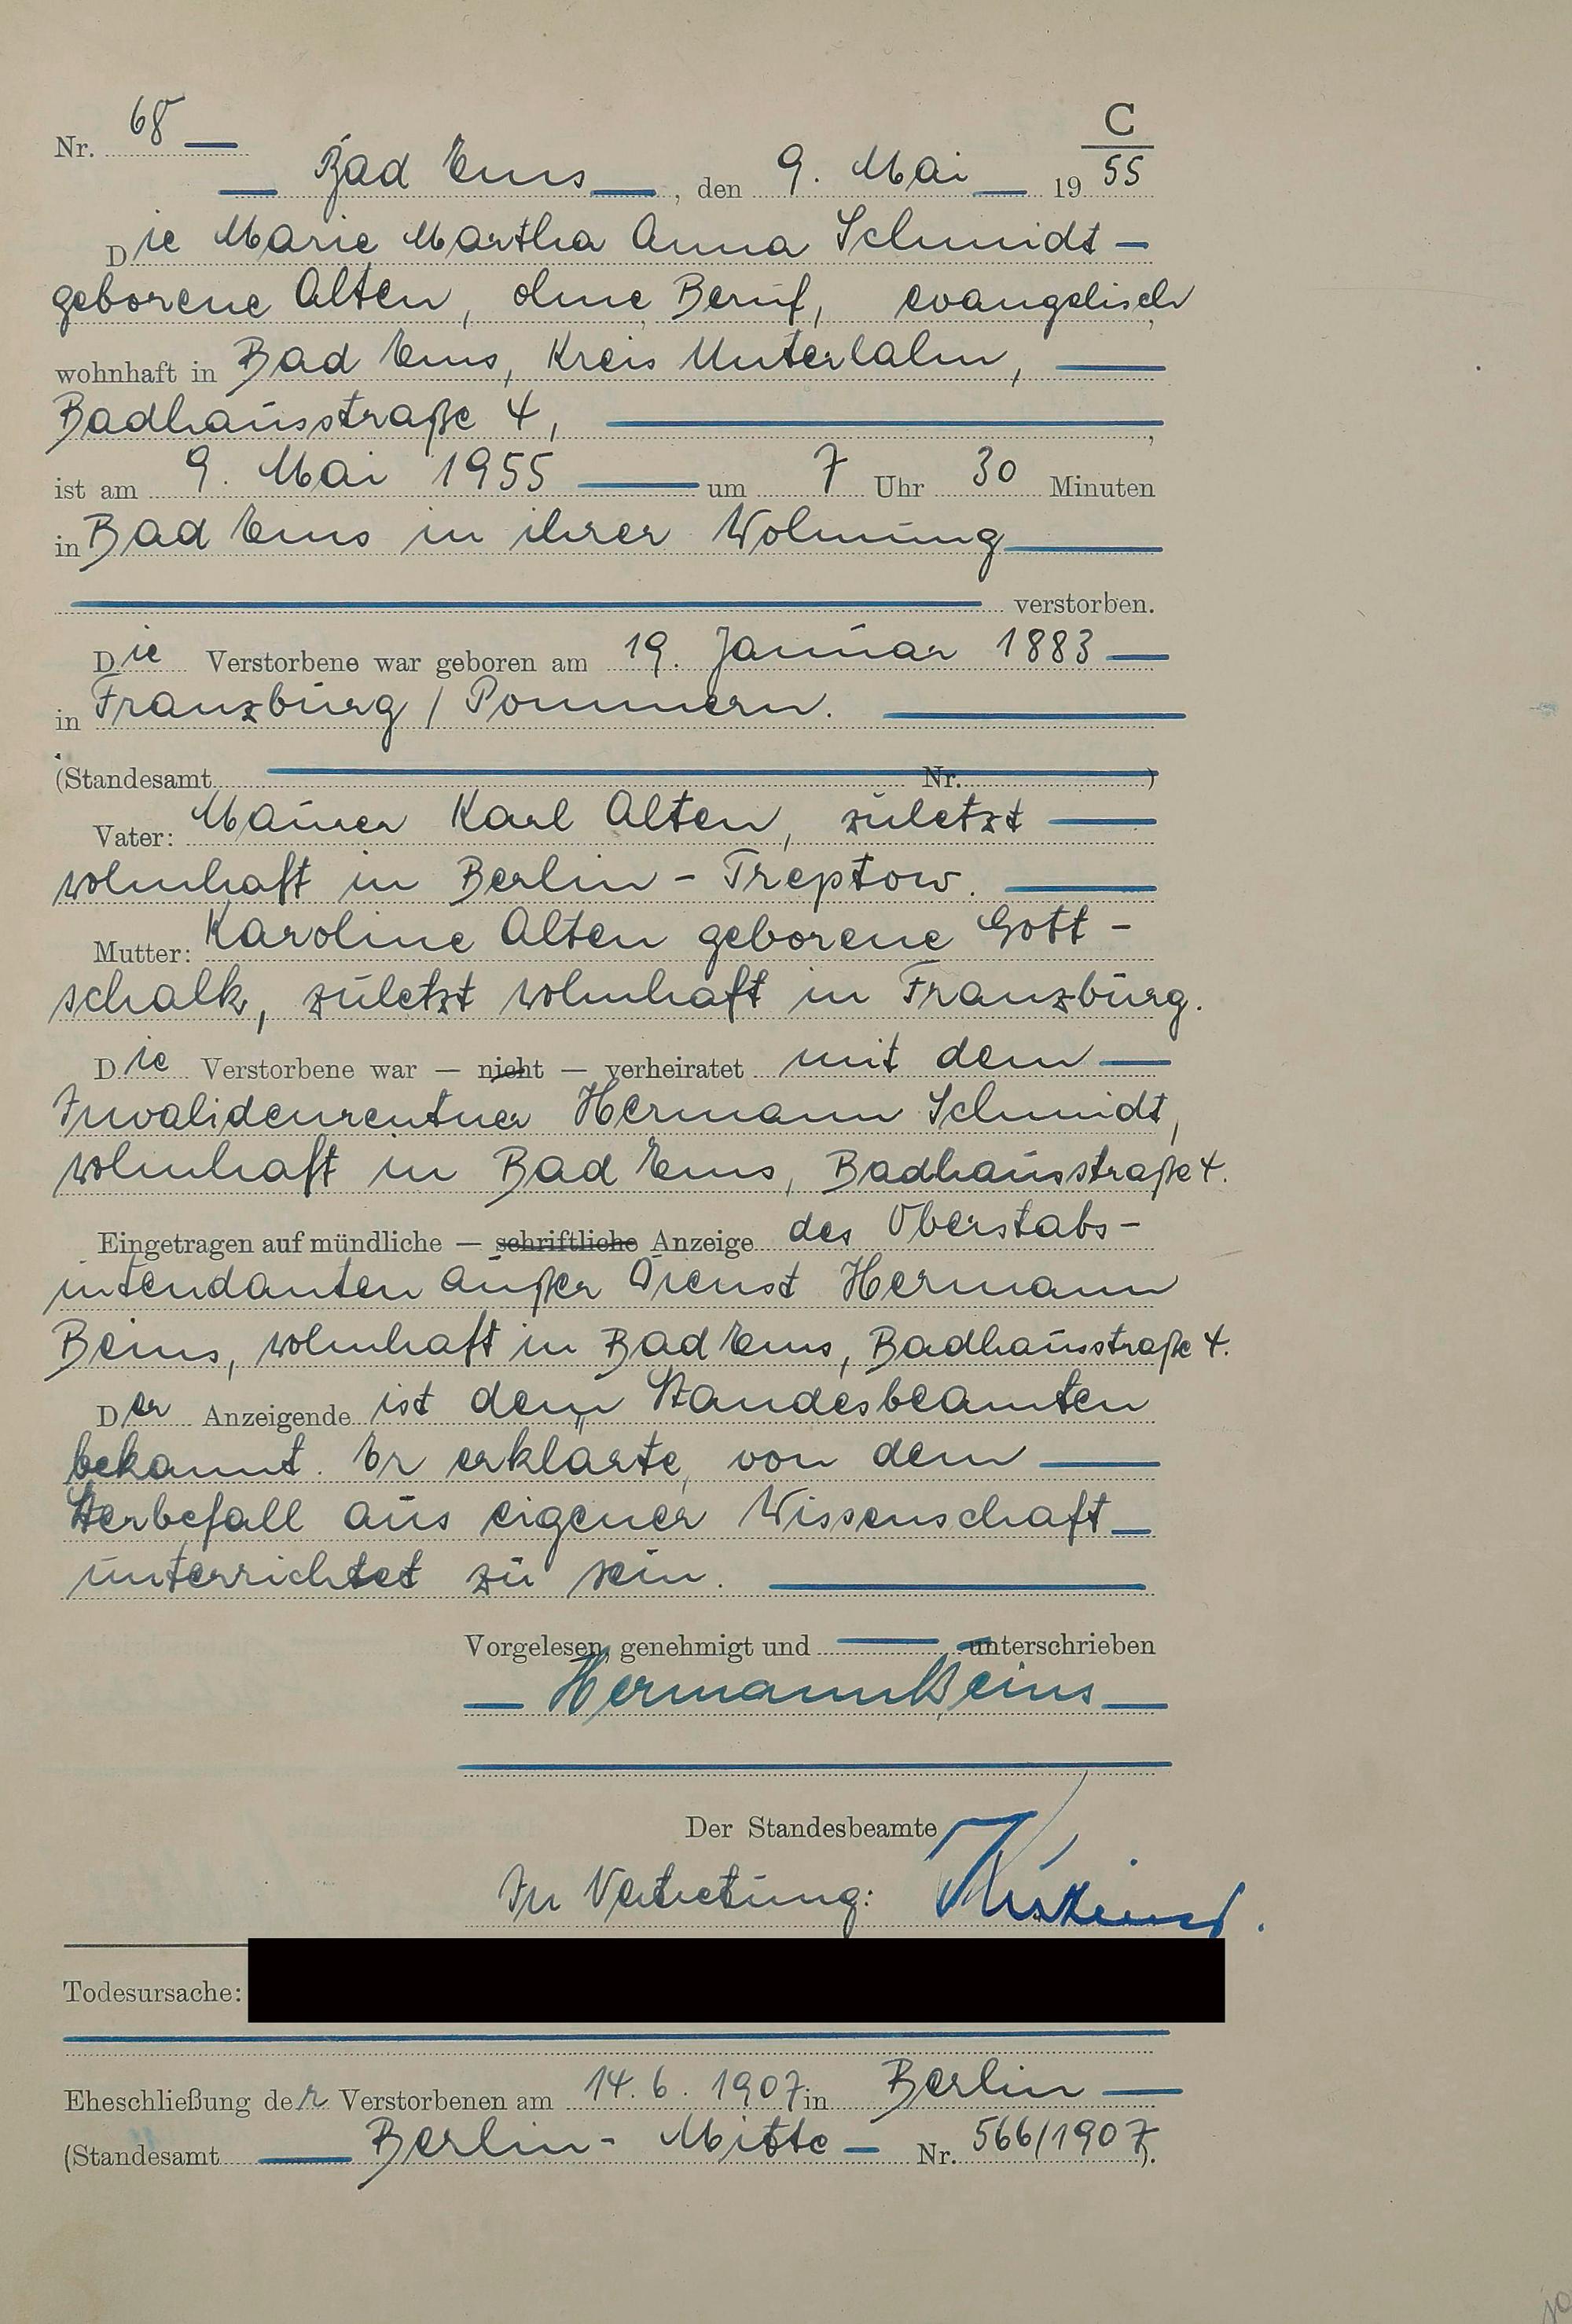 C
Nr. 68
Bad Ems, den 9. Mai 19 55
Die Marie Martha Anna Schmidt
geborene Alten, ohne Beruf, evangelisch,
wohnhaft in Bad Ems, Kreis Unterlahn,
Badhausstraße 4,
ist am 9. Mai 1955 um 7 Uhr 30 Minuten
in Bad Ems in ihrer Wohnung
verstorben.
Die Verstorbene war geboren am 19. Januar 1883
in Franzburg / Pommern.
(Standesamt Nr. )
Vater: Maurer Karl Alten, zuletzt
wohnhaft in Berlin - Treptow.
Mutter: Karoline Alten geborene Gott-
schalk, zuletzt wohnhaft in Franzburg.
Die Verstorbene war — nicht — verheiratet mit dem
Invalidenrentner Hermann Schmidt,
wohnhaft in Bad Ems, Badhausstraße 4.
Eingetragen auf mündliche — schriftliche Anzeige des Oberstabs-
intendanten außer Dienst Hermann
Beins, wohnhaft in Bad Ems, Badhausstraße 4.
Der Anzeigende ist dem Standesbeamten
bekannt. Er erklärte, von dem
Sterbefall aus eigener Wissenschaft
unterrichtet zu sein.
Vorgelesen, genehmigt und unterschrieben
Hermann Beins
Der Standesbeamte
In Vertretung:
Todesursache:
Eheschließung der Verstorbenen am 14. 6. 1907 in Berlin
(Standesamt Berlin - Mitte Nr. 566/1907).